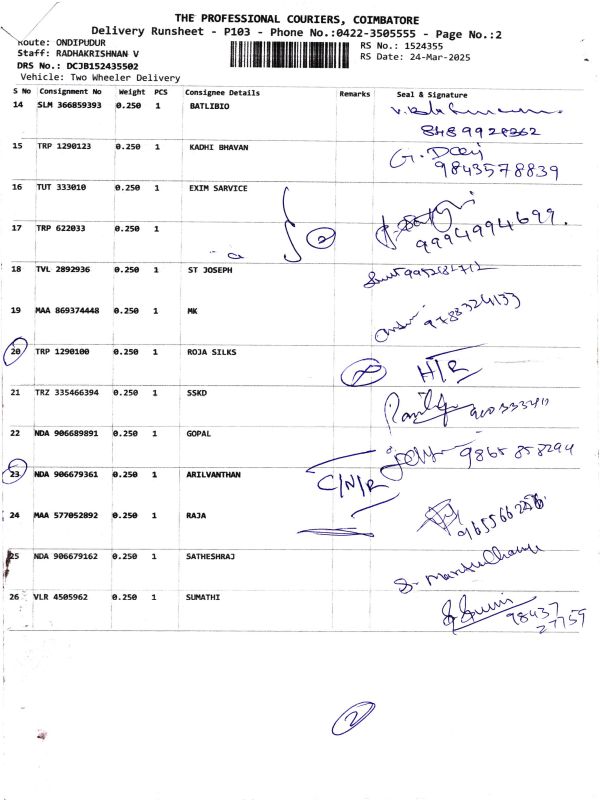 THE PROFESSIONAL COURIERS, COIMBATORE
Delivery Runsheet - P103 - Phone No.:0422-3505555 - Page No.:2
Route: ONDIPUDUR
RS No.: 1524355
Staff: RADHAKRISHNAN V
RS Date: 24-Mar-2025
DRS No.: DCJB152435502
Vehicle: Two Wheeler Delivery
S No Consignment No Weight PCS Consignee Details Remarks Seal & Signature
14 SLM 366859393 0.250 1 BATLIBIO
8489928362
15 TRP 1290123 0.250 1 KADHI BHAVAN
9843578839
16 TUT 333010 0.250 1 EXIM SARVICE
17 TRP 622033 0.250 1 2 9994994699.
18 TVL 2892936 0.250 1 ST JOSEPH
19 MAA 869374448 0.250 1 MK
9788324133
20 TRP 1290100 0.250 1 ROJA SILKS H/R
21 TRZ 335466394 0.250 1 SSKD
22 NDA 906689891 0.250 1 GOPAL 9865858294
23 NDA 906679361 0.250 1 ARILVANTHAN C/N/R
24 MAA 577052892 0.250 1 RAJA
25 NDA 906679162 0.250 1 SATHESHRAJ
26 VLR 4505962 0.250 1 SUMATHI 98437
27759
2